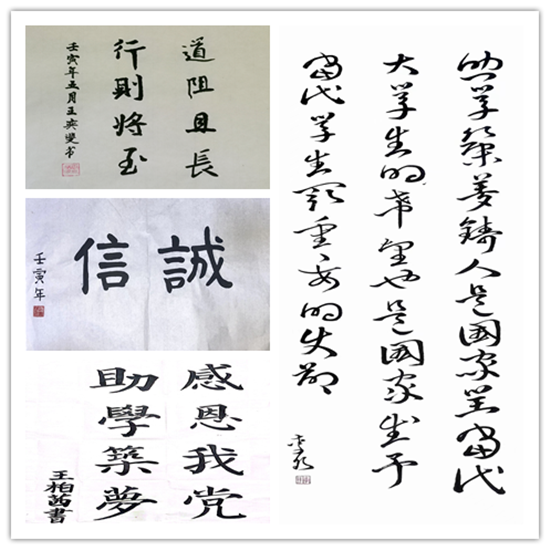 道阻且長
行則將至
壬寅年五月王奕雯书
誠信
壬寅年
感恩我党
助學築夢
王柏茜書
助学築夢鑄人是國家對當代
大学生的希望也是國家賦予
當代学生最重要的使命